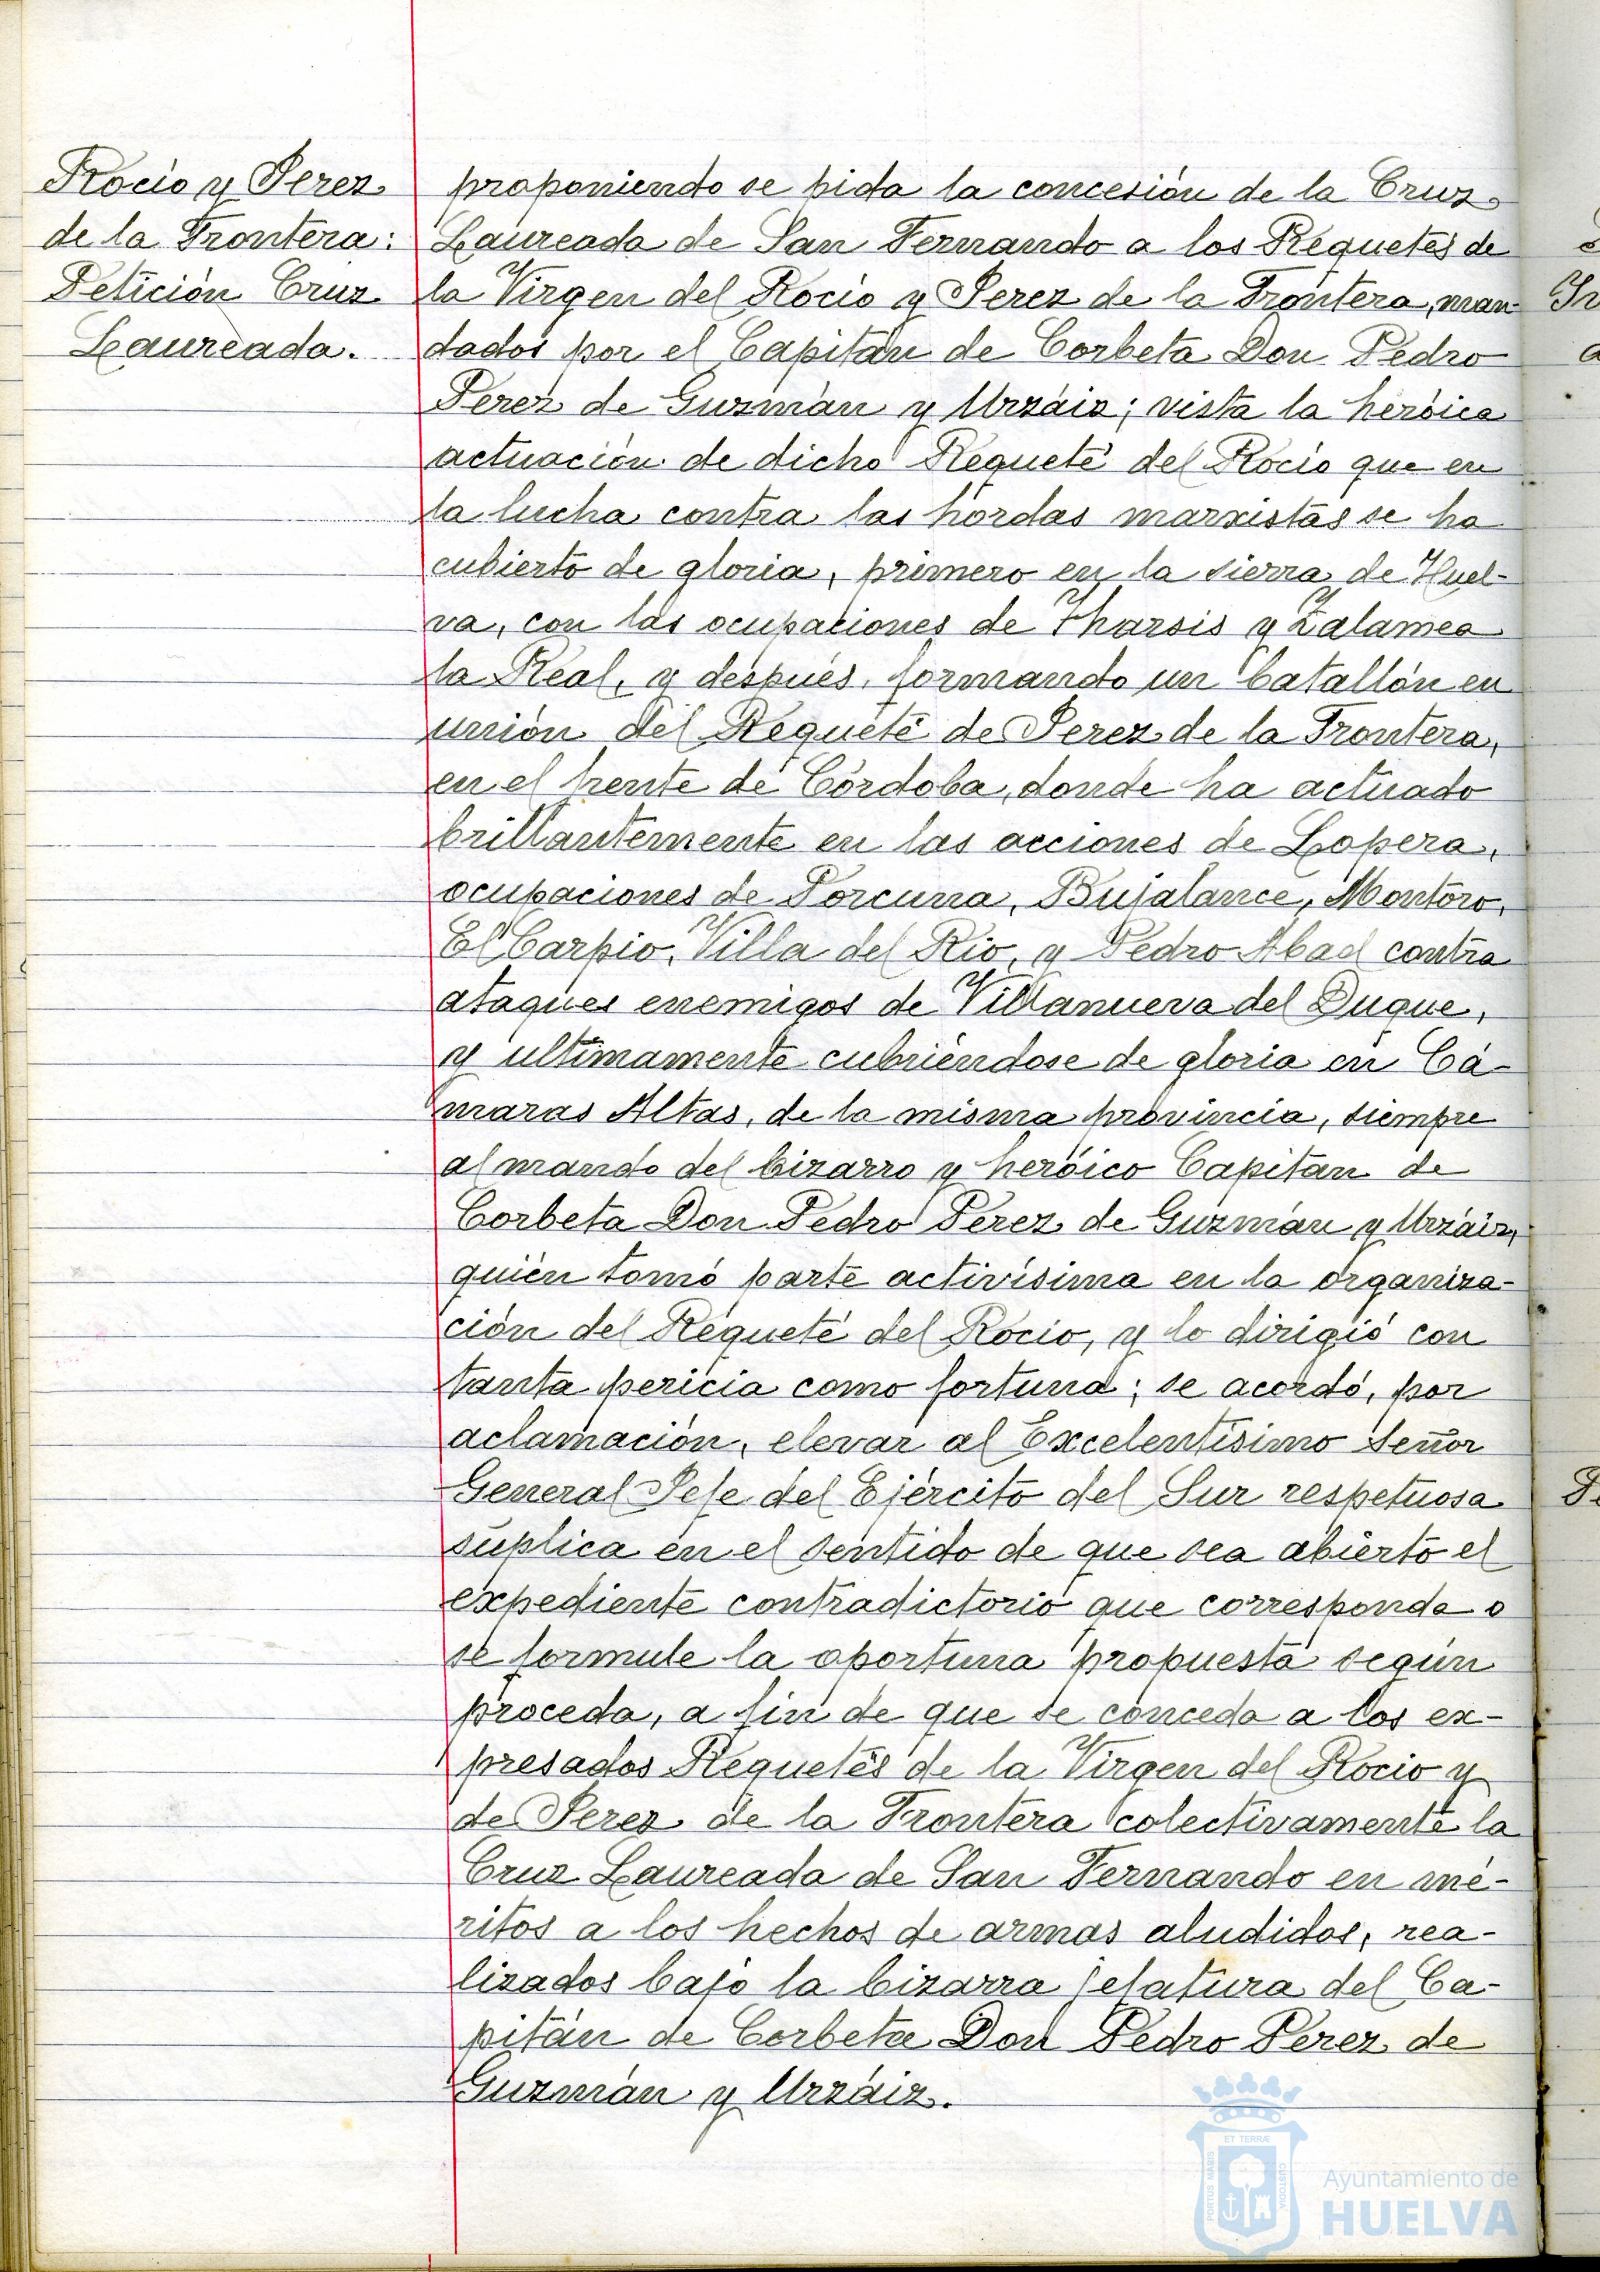 Rocío y Jerez
de la Frontera:
Petición Cruz
Laureada.
proponiendo se pida la concesión de la Cruz
Laureada de San Fernando a los Requetés de
la Virgen del Rocío y Jerez de la Frontera, man-
dados por el Capitán de Corbeta Don Pedro
Pérez de Guzmán y Urzáiz; vista la heróica
actuación de dicho Requeté del Rocío que en
la lucha contra las hordas marxistas se ha
cubierto de gloria, primero en la sierra de Huel-
va, con las ocupaciones de Tharsis y Zalamea
la Real, y después, formando un batallón en
unión del Requeté de Jerez de la Frontera,
en el frente de Córdoba, donde ha actuado
brillantemente en las acciones de Lopera,
ocupaciones de Porcuna, Bujalance, Montoro,
El Carpio, Villa del Río, y Pedro Abad contra
ataques enemigos de Villanueva del Duque,
y ultimamente cubriéndose de gloria en Cá-
maras Altas, de la misma provincia, siempre
al mando del bizarro y heróico Capitán de
Corbeta Don Pedro Pérez de Guzmán y Urzáiz,
quién tomó parte activísima en la organiza-
ción del Requeté del Rocío, y lo dirigió con
tanta pericia como fortuna; se acordó, por
aclamación, elevar al Excelentísimo Señor
General Jefe del Ejército del Sur respetuosa
súplica en el sentido de que sea abierto el
expediente contradictorio que corresponda o
se formule la oportuna propuesta según
proceda, a fin de que se conceda a los ex-
presados Requetés de la Virgen del Rocío y
de Jerez de la Frontera colectivamente la
Cruz Laureada de San Fernando en mé-
ritos a los hechos de armas aludidos, rea-
lizados bajo la bizarra jefatura del Ca-
pitán de Corbeta Don Pedro Pérez de
Guzmán y Urzáiz.
ET TERRÆ
PORTUS MARIS
CUSTODIA
Ayuntamiento de
HUELVA